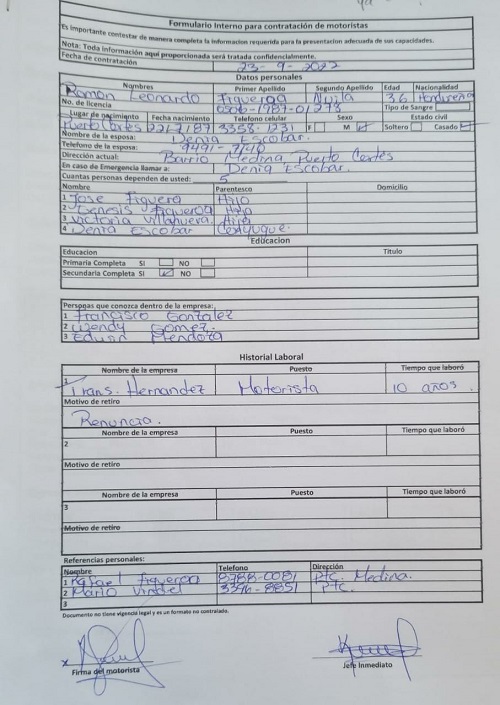 Formulario Interno para contratación de motoristas
Es importante contestar de manera completa la informacion requerida para la presentacion adecuada de sus capacidades.
Nota: Toda información aquí proporcionada será tratada confidencialmente.
Fecha de contratación 23-9-2022
Datos personales
Nombres Primer Apellido Segundo Apellido Edad Nacionalidad
Ramon Leonardo Figueroa 36 Hondureña
No. de licencia 0506-1987-01273 Tipo de Sangre
Lugar de nacimiento Fecha nacimiento Telefono celular Sexo Estado civil
Puerto Cortes 22/7/87 3358-1231 F M Soltero Casado
Nombre de la esposa: Denia Escobar.
Telefono de la esposa: 9491-7140
Dirección actual: Barrio Medina, Puerto Cortes
En caso de Emergencia llamar a: Denia Escobar.
Cuantas personas dependen de usted: 5
Nombre Parentesco Domicilio
1 Jose Figueroa Hijo
2 Genesis Figueroa Hija
3 Victoria Villanueva Hija
4 Denia Escobar
Educacion
Educacion Titulo
Primaria Completa SI NO
Secundaria Completa SI NO
Personas que conozca dentro de la empresa:
1 Francisco Gonzalez
2 Wendy Gomez.
3 Mendoza
Historial Laboral
Nombre de la empresa Puesto Tiempo que laboró
1 Trans. Hernandez Motorista 10 años.
Motivo de retiro
Renuncio.
Nombre de la empresa Puesto Tiempo que laboró
2
Motivo de retiro
Nombre de la empresa Puesto Tiempo que laboró
3
Motivo de retiro
Referencias personales:
Nombre Telefono Dirección
1 Rafael Figueroa 8788-0081 Ptc. Medina.
2 Mario 3396-8851 Ptc.
3
Documento no tiene vigencia legal y es un formato no controlado.
Firma del motorista Jefe Inmediato